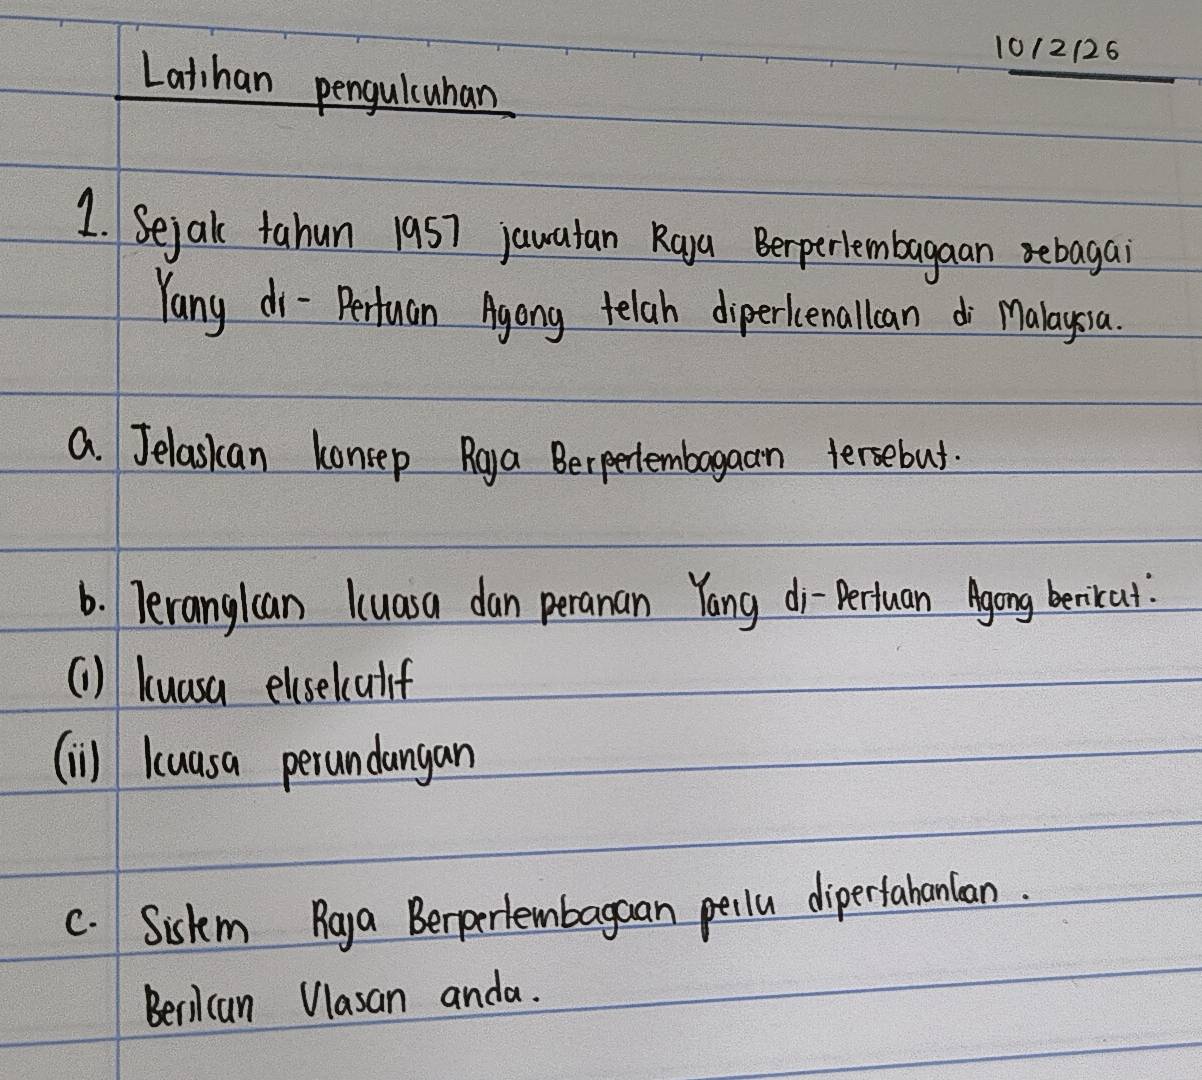 10/2/26
Latihan pengukuhan
1. Sejak tahun 1957 jawatan Raja Berperlembagaan sebagai
Yang di-Pertuan Agong telah diperkenalkan di Malaysia.
a. Jelaskan konsep Raja Berperlembagaan tersebut.
b. Terangkan kuasa dan peranan Yang di-Pertuan Agong berikut:
(i) kuasa eksekutif
(ii) kuasa perundangan
c. Sistem Raja Berperlembagaan perlu dipertahankan.
Berikan Ulasan anda.